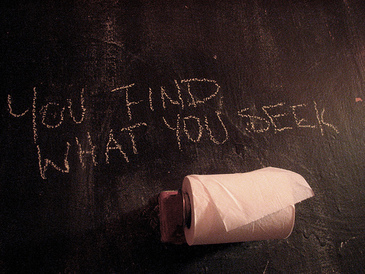 YOU FIND
WHAT YOU SEEK